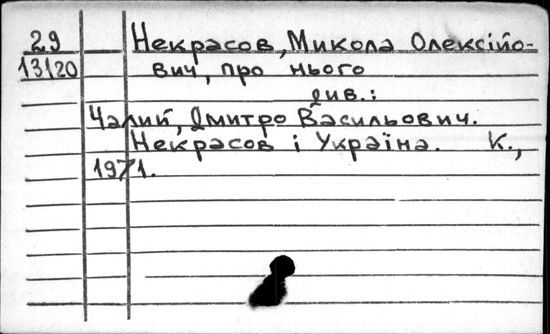 29 Некрасов, Микола Олексійо-
13120 вич, про нього
див.:
Чалий, Дмитро Васильович.
Некрасов і Україна. К.,
1971.